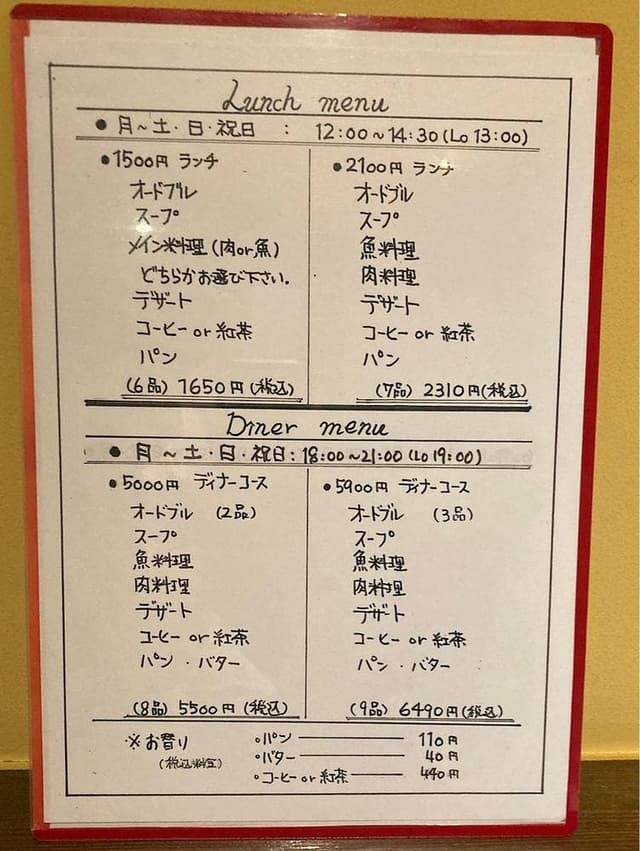 Lunch menu
• 月～土・日・祝日 : 12:00～14:30(Lo 13:00)
• 1500円 ランチ
オードブル
スープ
メイン料理(肉or魚)
どちらかお選び下さい.
デザート
コーヒー or 紅茶
パン
(6品) 1650円(税込)
• 2100円 ランチ
オードブル
スープ
魚料理
肉料理
デザート
コーヒー or 紅茶
パン
(7品) 2310円(税込)
Diner menu
• 月～土・日・祝日:18:00～21:00(Lo 19:00)
• 5000円 ディナーコース
オードブル (2品)
スープ
魚料理
肉料理
デザート
コーヒー or 紅茶
パン・バター
(8品) 5500円(税込)
• 5900円 ディナーコース
オードブル (3品)
スープ
魚料理
肉料理
デザート
コーヒー or 紅茶
パン・バター
(9品) 6490円(税込)
※お替り
(税込料金)
・パン 110円
・バター 40円
・コーヒー or 紅茶 440円